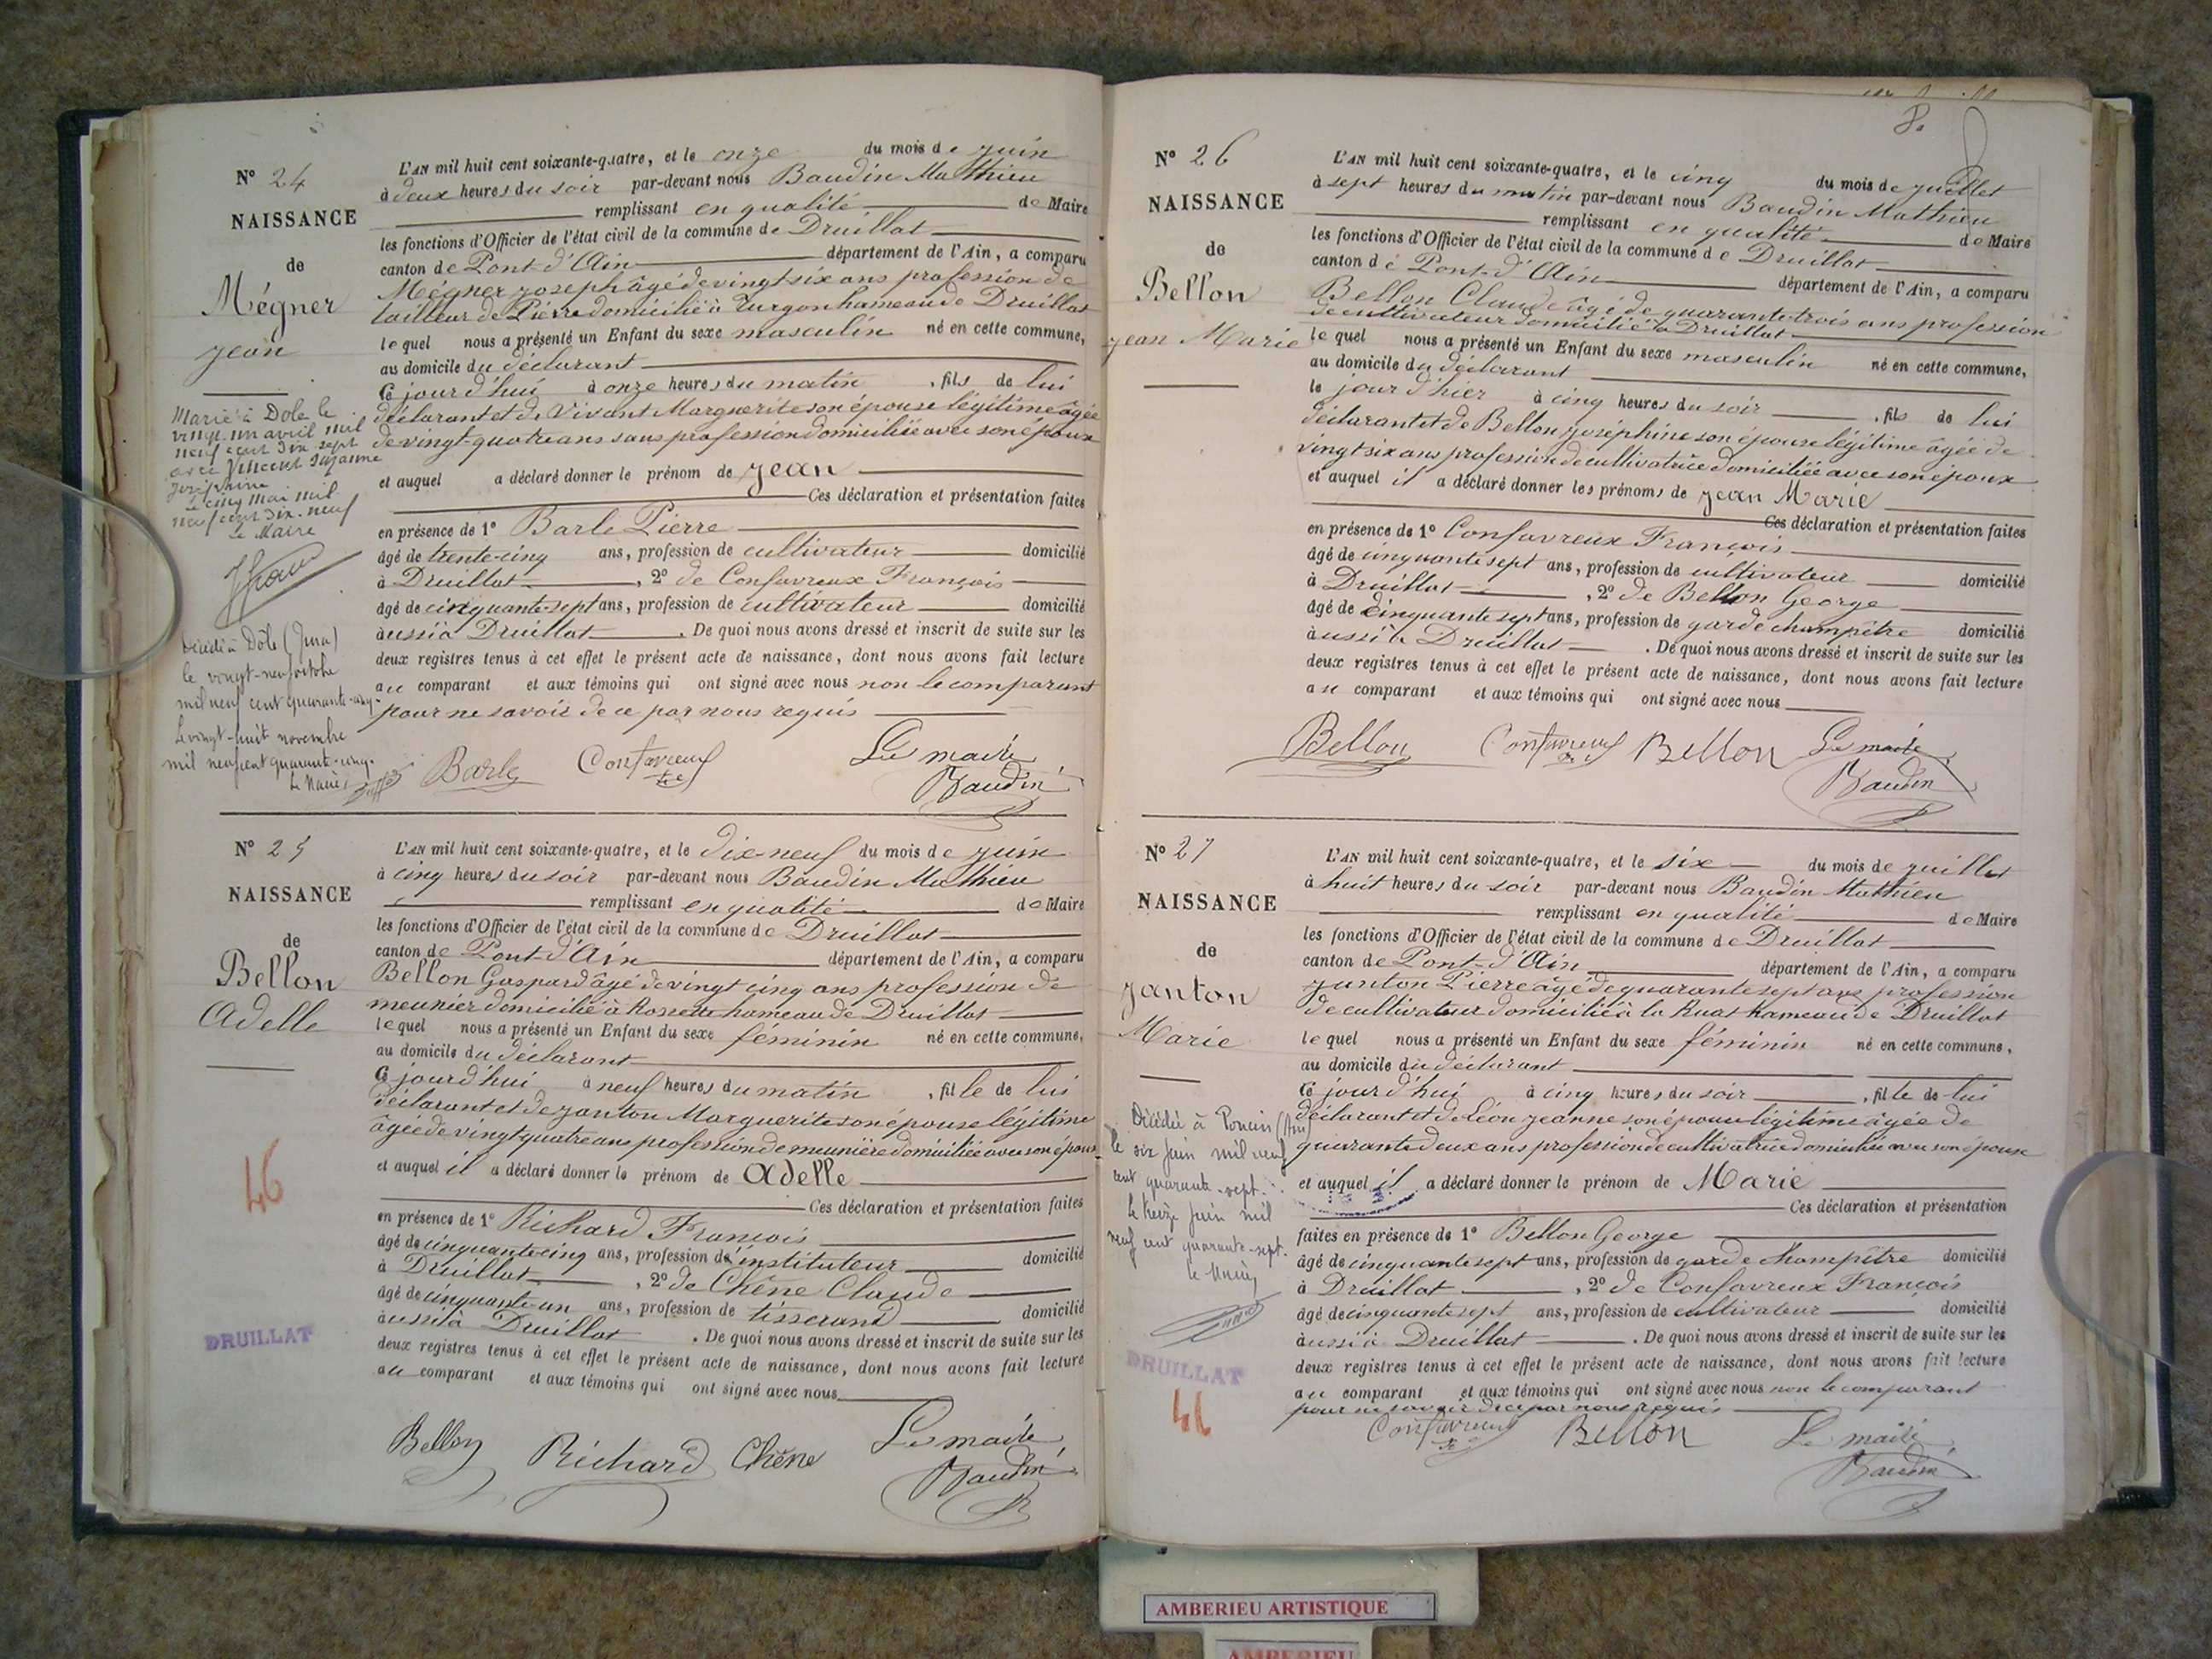 N° 24
NAISSANCE
de
Mégner
jean
Marié à Dole le
vingt un avril mil
neuf cent dix sept
avec Vincent Suzanne
Joséphine
Le cinq mai mil
neuf cent dix-neuf
Le Maire
Décédé à Dôle (Jura)
le vingt-neuf octobre
mil neuf cent quarante-cinq.
Le vingt-huit novembre
mil neuf cent quarante-cinq.
Le Maire,
L'AN mil huit cent soixante-quatre, et le onze du mois de juin
à deux heures du soir par-devant nous Baudin Mathieu
remplissant en qualité de Maire
les fonctions d'Officier de l'état civil de la commune de Druillat
canton de Pont-d'Ain département de l'Ain, a comparu
Mégner joseph âgé de vingt six ans profession de
tailleur de Pierre domicilié à Turgon hameau de Druillat
lequel nous a présenté un Enfant du sexe masculin né en cette commune,
au domicile du déclarant
Ce jour d'hui à onze heures du matin, fils de lui
déclarant et de Vivant Marguerite son épouse légitime âgée
de vingt-quatre ans sans profession domiciliée avec son époux
et auquel a déclaré donner le prénom de jean
Ces déclaration et présentation faites
en présence de 1° Barle Pierre
âgé de trente-cinq ans, profession de cultivateur domicilié
à Druillat, 2° de Confavreux François
âgé de cinquante-sept ans, profession de cultivateur domicilié
à aussi à Druillat. De quoi nous avons dressé et inscrit de suite sur les
deux registres tenus à cet effet le présent acte de naissance, dont nous avons fait lecture
au comparant et aux témoins qui ont signé avec nous non le comparant
pour ne savoir de ce par nous requis
Barle Confavreux Le maire
Baudin
N° 25
NAISSANCE
de
Bellon
Adelle
46
DRUILLAT
L'AN mil huit cent soixante-quatre, et le dix-neuf du mois de juin
à cinq heures du soir par-devant nous Baudin Mathieu
remplissant en qualité de Maire
les fonctions d'Officier de l'état civil de la commune de Druillat
canton de Pont-d'Ain département de l'Ain, a comparu
Bellon Gaspard âgé de vingt cinq ans profession de
meunier domicilié à Rossette hameau de Druillat
lequel nous a présenté un Enfant du sexe féminin né en cette commune,
au domicile du déclarant
Ce jourd'hui à neuf heures du matin, fille de lui
déclarant et de janton Marguerite son épouse légitime
âgée de vingt quatre ans profession de meunière domiciliée avec son époux
et auquel il a déclaré donner le prénom de Adelle
Ces déclaration et présentation faites
en présence de 1° Richard François
âgé de cinquante-cinq ans, profession d'instituteur domicilié
à Druillat, 2° de Chêne Claude
âgé de cinquante-un ans, profession de tisserand domicilié
à aussi à Druillat. De quoi nous avons dressé et inscrit de suite sur les
deux registres tenus à cet effet le présent acte de naissance, dont nous avons fait lecture
au comparant et aux témoins qui ont signé avec nous
Bellon Richard Chêne Le maire
Baudin
8.
N° 26
NAISSANCE
de
Bellon
jean Marie
L'AN mil huit cent soixante-quatre, et le cinq du mois de juillet
à sept heures du matin par-devant nous Baudin Mathieu
remplissant en qualité de Maire
les fonctions d'Officier de l'état civil de la commune de Druillat
canton de Pont-d'Ain département de l'Ain, a comparu
Bellon Claude âgé de quarante trois ans profession
de cultivateur domicilié à Druillat
lequel nous a présenté un Enfant du sexe masculin né en cette commune,
au domicile du déclarant
le jour d'hier à cinq heures du soir, fils de lui
déclarant et de Bellon joséphine son épouse légitime âgée de
vingt six ans profession de cultivatrice domiciliée avec son époux
et auquel il a déclaré donner les prénoms de jean Marie
Ces déclaration et présentation faites
en présence de 1° Confavreux François
âgé de cinquante sept ans, profession de cultivateur domicilié
à Druillat, 2° de Bellon George
âgé de cinquante sept ans, profession de garde champêtre domicilié
à aussi à Druillat. De quoi nous avons dressé et inscrit de suite sur les
deux registres tenus à cet effet le présent acte de naissance, dont nous avons fait lecture
au comparant et aux témoins qui ont signé avec nous
Bellon Confavreux Bellon Le maire
Baudin
N° 27
NAISSANCE
de
janton
Marie
Décédée à Poncin (Ain)
le six juin mil neuf
cent quarante-sept.
Le treize juin mil
neuf cent quarante-sept.
Le Maire,
DRUILLAT
46
L'AN mil huit cent soixante-quatre, et le six du mois de juillet
à huit heures du soir par-devant nous Baudin Mathieu
remplissant en qualité de Maire
les fonctions d'Officier de l'état civil de la commune de Druillat
canton de Pont-d'Ain département de l'Ain, a comparu
janton Pierre âgé de quarante sept ans profession
de cultivateur domicilié à la Ruat hameau de Druillat
lequel nous a présenté un Enfant du sexe féminin né en cette commune,
au domicile du déclarant
Ce jour d'hui à cinq heures du soir, fille de lui
déclarant et de Léon jeanne son épouse légitime âgée de
quarante deux ans profession de cultivatrice domiciliée avec son époux
et auquel il a déclaré donner le prénom de Marie
Ces déclaration et présentation
faites en présence de 1° Bellon George
âgé de cinquante sept ans, profession de garde champêtre domicilié
à Druillat, 2° de Confavreux François
âgé de cinquante sept ans, profession de cultivateur domicilié
à aussi à Druillat. De quoi nous avons dressé et inscrit de suite sur les
deux registres tenus à cet effet le présent acte de naissance, dont nous avons fait lecture
au comparant et aux témoins qui ont signé avec nous non le comparant
pour ne savoir de ce par nous requis
Confavreux Bellon Le maire
Baudin
AMBERIEU ARTISTIQUE
AMBERIEU